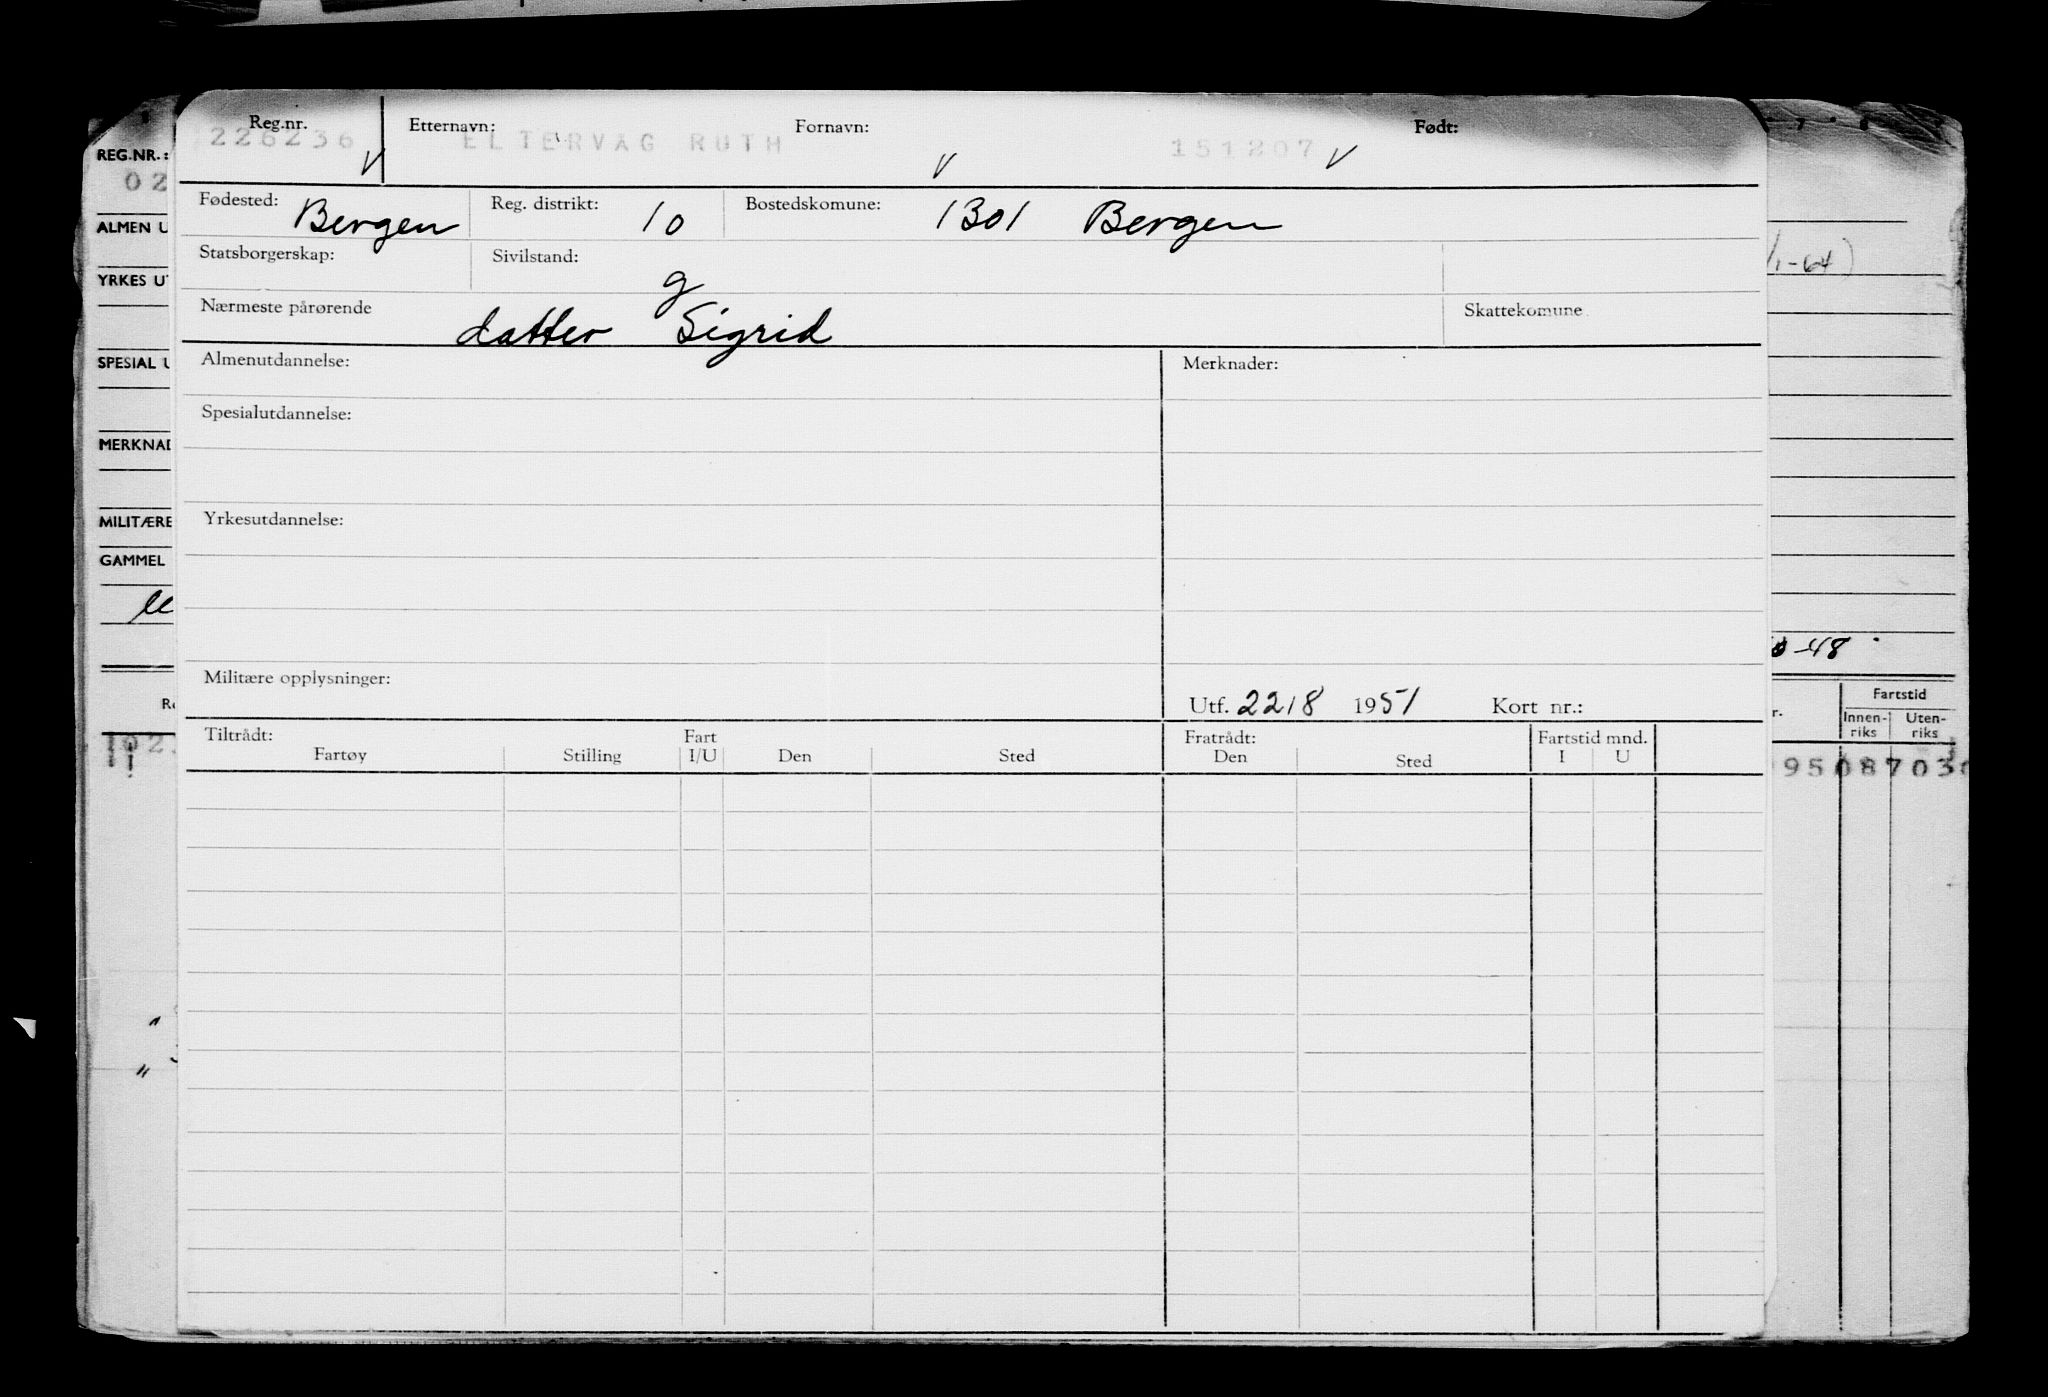 Reg.nr. Etternavn: Fornavn: Født:
226236 ELTERVÅG RUTH 151207
V V V
Fødested: Bergen Reg. distrikt: 10 Bostedskomune: 1301 Bergen
Statsborgerskap: Sivilstand: g
Nærmeste pårørende datter Sigrid Skattekomune
Almenutdannelse: Merknader:
Spesialutdannelse:
Yrkesutdannelse:
Militære opplysninger:
Utf. 22/8 1951 Kort nr.:
Tiltrådt: Fart Fratrådt: Fartstid mnd.
Fartøy Stilling I/U Den Sted Den Sted I U
REG.NR.:
02
ALMEN U
YRKES U
SPESIAL U
MERKNAD
MILITÆRE
GAMMEL
/1-64)
-48
Fartstid
Innen-
riks
Uten-
riks
9508703